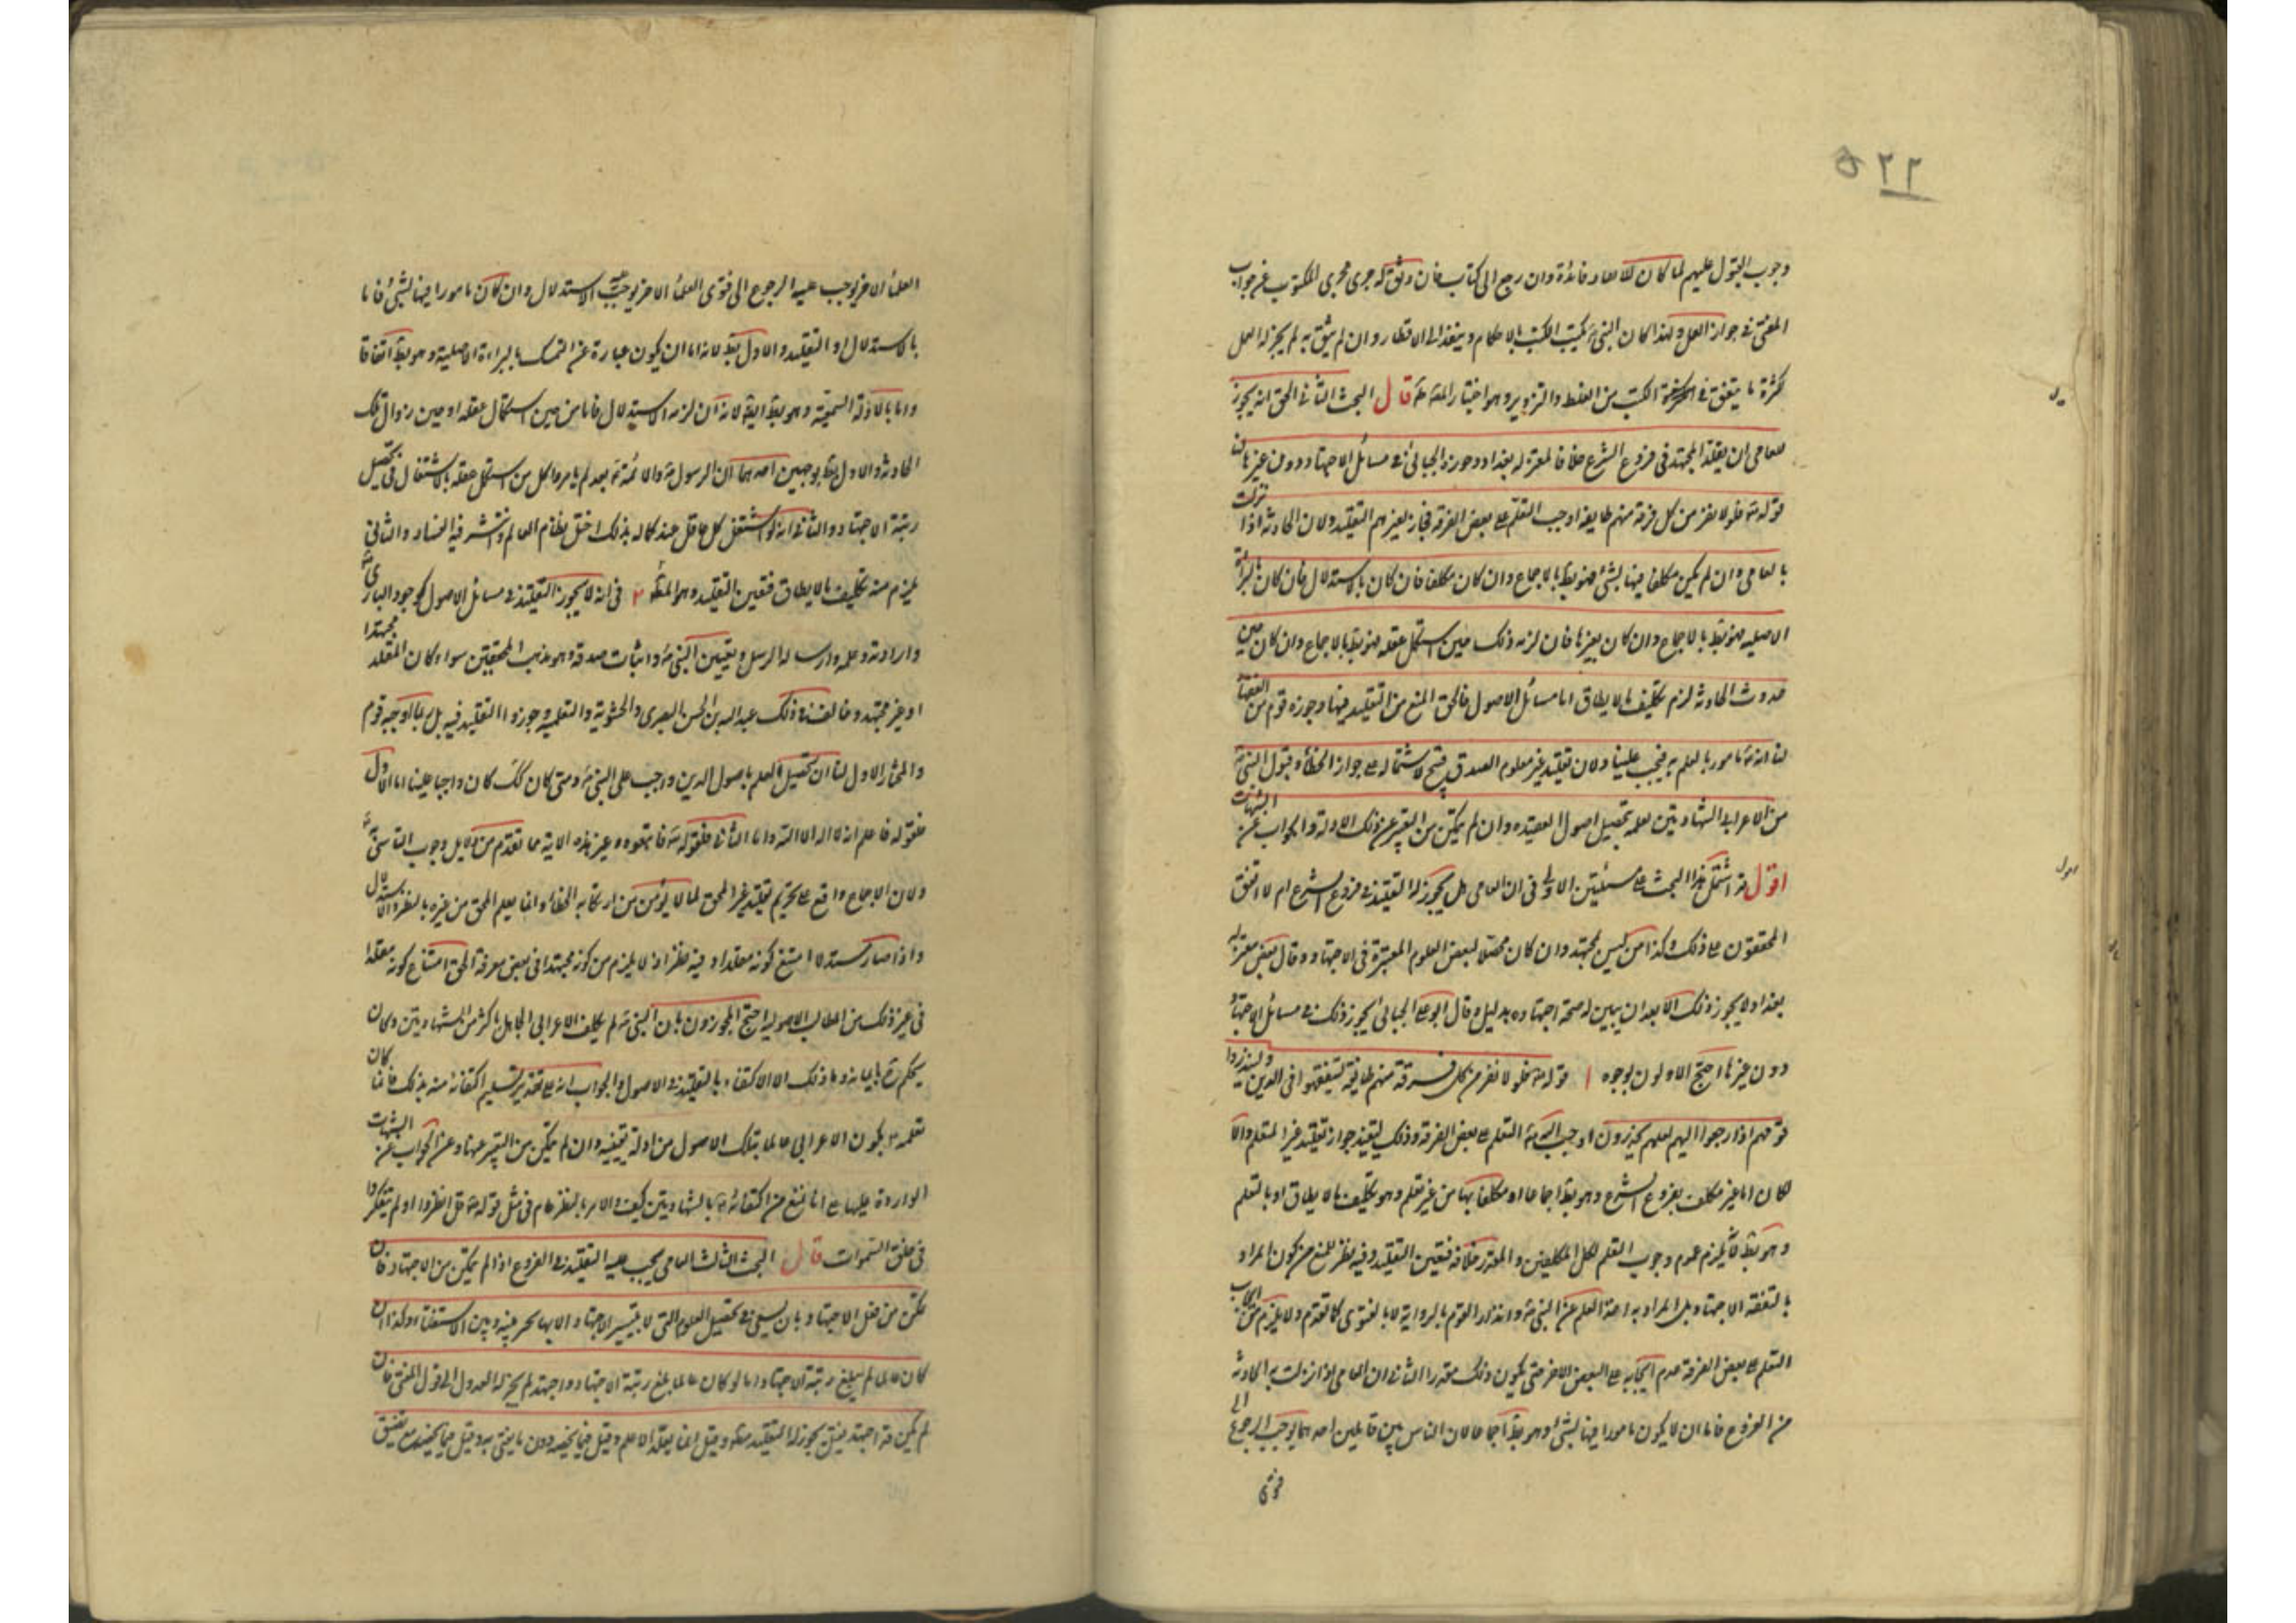 ٥٢٢
وجوب القبول عليهم لما كان للاجتهاد فائدة وان رجع الى كتاب فان وثق به جرى مجرى المكتوب من جواب
المفتى فى جواز العمل ولهذا كان النبى ص يكتب الكتب بالاحكام وينفذها الى الاقطار وان لم يثق به لم يجز له العمل
لكثرة ما يتفق فى الكتب من الغلط والتزوير وهو اختيار المصنف قال البحث الثانى الحق انه يجوز
للعامى ان يقلد المجتهد فى فروع الشرع خلافا لمعتزلة بغداد وجوزه الجبائى فى مسائل الاجتهاد دون غيرها لنا
قوله تع فلولا نفر من كل فرقة منهم طايفة اوجب التعلم على بعض الفرقة فجاز لغيرهم التقليد ولان الحادثة اذا نزلت
بالعامى وان لم يكن مكلفا فيها بشئ فهو بط بالاجماع وان كان مكلفا فان كان بالاستدلال فان كان بالبراءة
الاصلية فهو بط بالاجماع وان كان بغيرها فان لزمه ذلك حين استكمل عقله فهو بط بالاجماع وان كان حين
حدوث الحادثة لزم تكليف ما لا يطاق اما مسائل الاصول فالحق المنع من التقليد فيها وجوزه قوم من الفقهاء
لنا انه ص مامور بالعلم به فيجب علينا ولان تقليد غير معلوم الصدق قبيح لاشتماله على جواز الخطأ وقبول النبى ص
من الاعرابى الشهادتين لعلمه بتحصيل اصول العقيدة وان لم يتمكن من التعبير عن ذلك الادلة والجواب عن الشبهات
اقول قد اشتمل هذا البحث على مسئلتين الاولى فى ان العامى هل يجوز له التقليد فى فروع الشرع ام لا اتفق
المحققون على ذلك وكذا من ليس بمجتهد وان كان محصلا لبعض العلوم المعتبرة فى الاجتهاد وقال بعض معتزلة
بغداد لا يجوز ذلك الا بعد ان يبين له صحة اجتهاده بدليله وقال ابو على الجبائى يجوز ذلك فى مسائل الاجتهاد
دون غيرها احتج الاولون بوجوه ا قوله تع فلولا نفر من كل فرقة منهم طايفة ليتفقهوا فى الدين ولينذروا
قومهم اذا رجعوا اليهم لعلهم يحذرون اوجب الله تع التعلم على بعض الفرقة وذلك يفيد جواز تقليد غير المتعلم والا
لكان اما غير مكلف بفروع الشرع وهو بط اجماعا او مكلفا بها من غير تعلم وهو تكليف ما لا يطاق او بالتعلم
وهو بط والا لزم عموم وجوب التعلم لكل المكلفين والمقدر خلافه فتعين التقليد وفيه نظر للمنع من كون المراد
بالتفقه الاجتهاد بل المراد به اخذ العلم عن النبى ص وانذار القوم بالرواية لا بالفتوى كما تقدم ولا يلزم من ايجاب
التعلم على بعض الفرقة عدم ايجابه على البعض الاخر حتى يكون ذلك مقدرا الثانى ان العامى اذا نزلت به الحادثة
من الفروع فاما ان لا يكون مامورا فيها بشئ وهو بط اجماعا لان الناس بين قايلين احدهما يوجب الرجوع الى
فتوى
العلماء الاخر يوجب عليه الرجوع الى فتوى العلماء الاخر يوجب الاستدلال وان كان مامورا فيها بشئ فاما
بالاستدلال او التقليد والاول بط لانه اما ان يكون عبارة عن التمسك بالبراءة الاصلية وهو بط اتفاقا
واما بالادلة السمعية وهو بط ايضا لانه ان لزمه الاستدلال فاما من حين استكمال عقله او حين نزول تلك
الحادثة والاول بط بوجهين احدهما ان الرسول ص والائمة ع بعده لم يامروا كل من استكمل عقله بالاشتغال فى تحصيل
رتبة الاجتهاد والثانى انه لو اشتغل كل عاقل عند كماله بذلك اختل نظام العالم وانتشر فيه الفساد والثانى
يلزم منه تكليف ما لا يطاق فتعين التقليد وهو المط ٢ فى انه لا يجوز التقليد فى مسائل الاصول كوجود البارى تع
وارادته وعلمه وارساله الرسل وتعيين النبى ص واثبات صدقه وهو مذهب المحققين سواء كان المقلد مجتهدا
او غير مجتهد وخالف فى ذلك عبد الله بن الحسن البصرى والحشوية والتعليمية وجوزوا التقليد فيه بل ربما اوجبه قوم
والمختار الاول لنا ان تحصيل العلم باصول الدين واجب على النبى ص ومتى كان كذلك كان واجبا علينا اما الاول
فقوله فاعلم انه لا اله الا الله واما الثانى فلقوله تع فاتبعوه وغير هذه الاية مما تقدم من دلايل وجوب التاسى به
ولان الاجماع واقع على تحريم تقليد غير المحق لما لا يؤمن من ارتكابه الخطأ وانما يعلم المحق من غيره بالنظر والاستدلال
واذا صار مستدلا امتنع كونه مقلدا وفيه نظر اذ لا يلزم من كونه مجتهدا فى بعض معرفة الحق امتناع كونه مقلدا
فى غير ذلك من المطالب الاصولية احتج المجوزون بان النبى ص لم يكلف الاعرابى الجاهل باكثر من الشهادتين وكان
يحكم بايمانه وما ذلك الا لاكتفاء بالتقليد فى الاصول والجواب انه على تقدير تسليم اكتفائه منه بذلك فانما كان
لعلمه بكون الاعرابى عالما بتلك الاصول من ادلة يقينية وان لم يتمكن من التعبير عنها وعن الجواب عن الشبهات
الواردة عليها على انا نمنع من اكتفائه بالشهادتين كيف والامر بالنظر عام فى مثل قوله تع قل انظروا او لم يتفكروا
فى خلق السموات قال البحث الثالث العامى يجب عليه التقليد فى الفروع اذا لم يتمكن من الاجتهاد فان
تمكن من فعل الاجتهاد بان يسعى فى تحصيل العلوم التى لا يتيسر الاجتهاد الا بها تخير بينه وبين الاستفتاء وكذا ان
كان عالما لم يبلغ رتبة الاجتهاد اما لو كان عالما بلغ رتبة الاجتهاد واجتهد لم يجز له العدول الى قول المفتى فان
لم يكن قد اجتهد فقيل يجوز له التقليد مطلقا وقيل انما يقلد الاعلم وقيل فيما يخصه دون ما يفتى به وقيل فيما يخصه مع تضيق